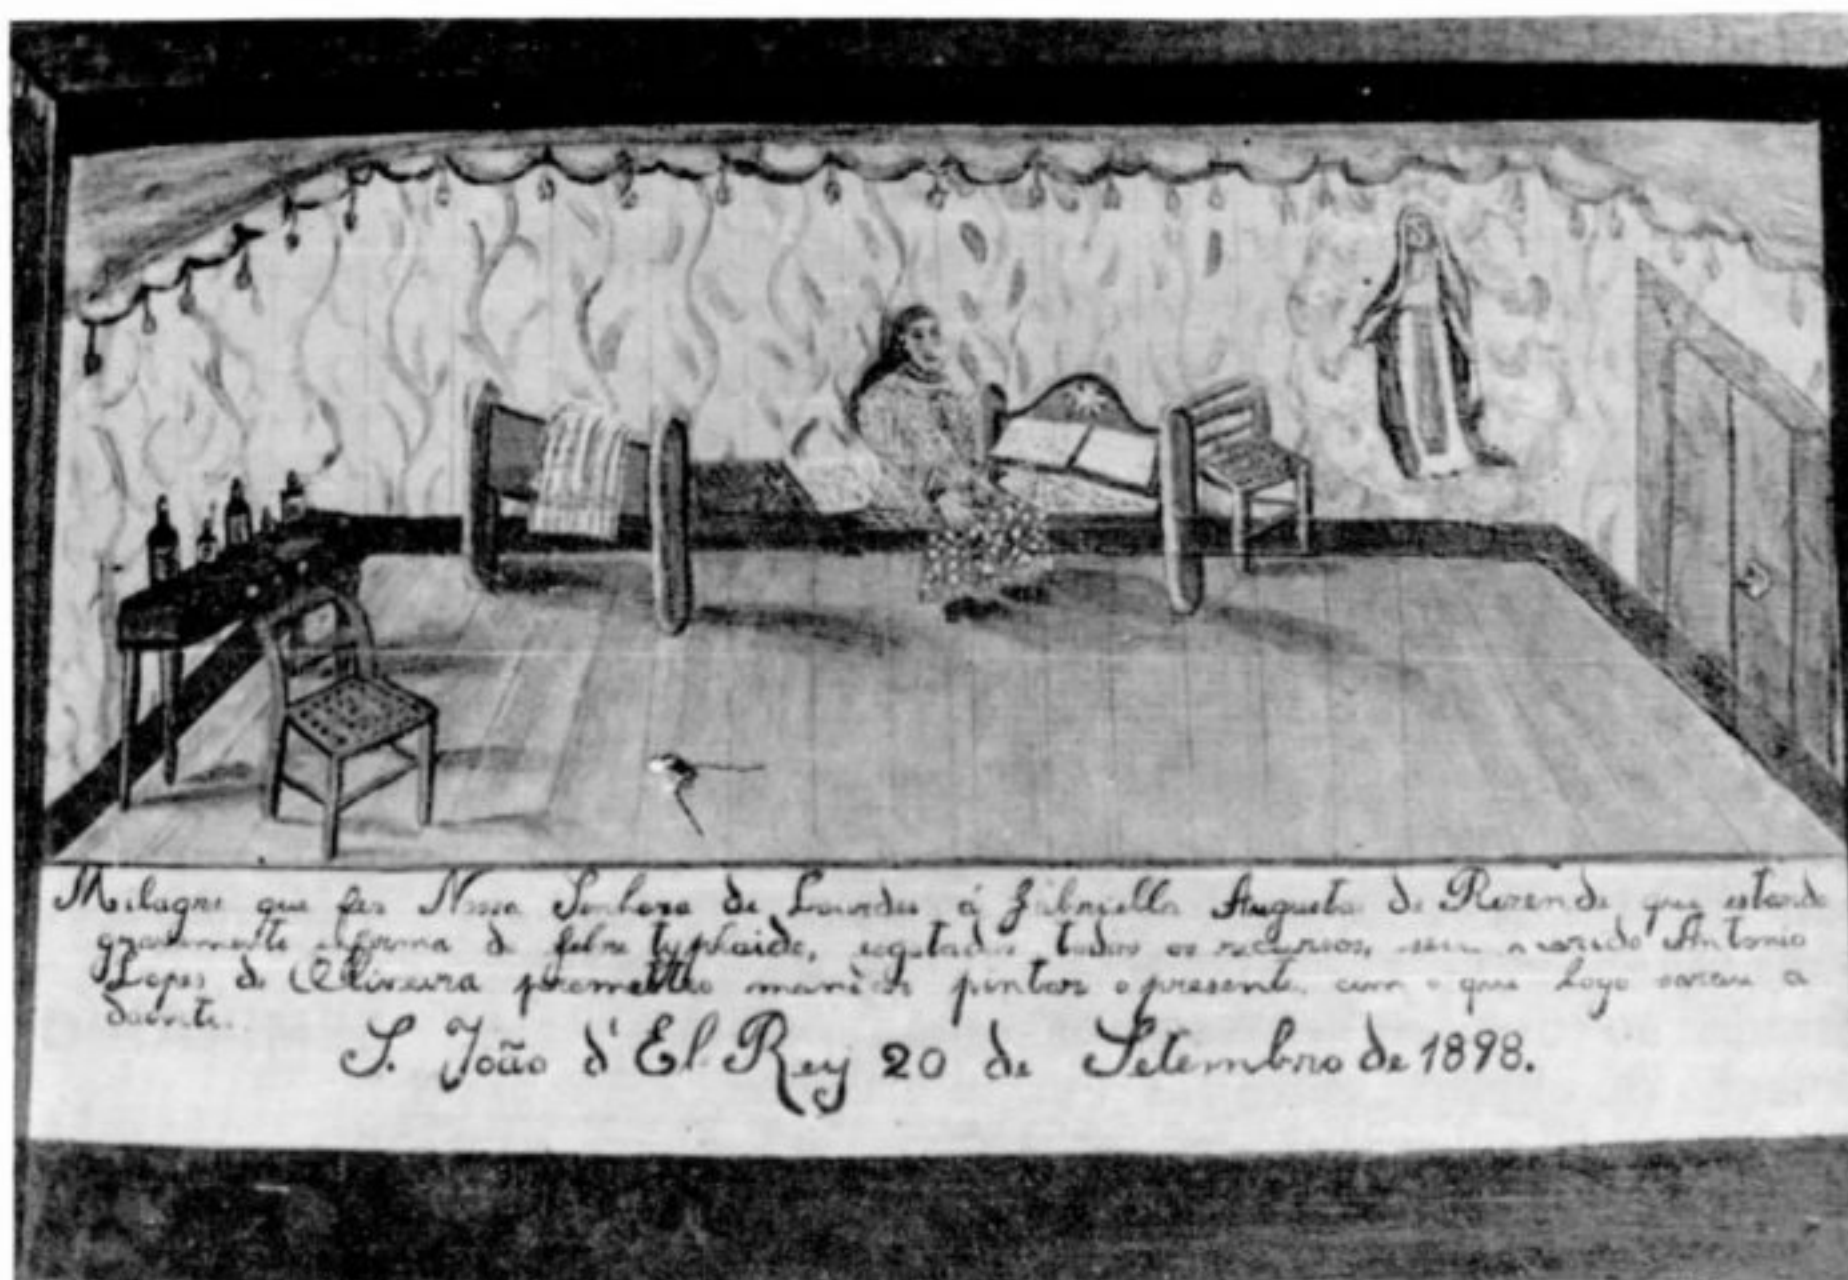 Milagre que fez Nossa Senhora de Lourdes á Gabriella Augusta de Rezende que estando
gravemente enferma de febre typhoide, esgotados todos os recursos, seu marido Antonio
Lopes de Oliveira prometteo mandar pintar o presente com o que logo sarou a
doente.
S. João d'El Rey 20 de Setembro de 1898.